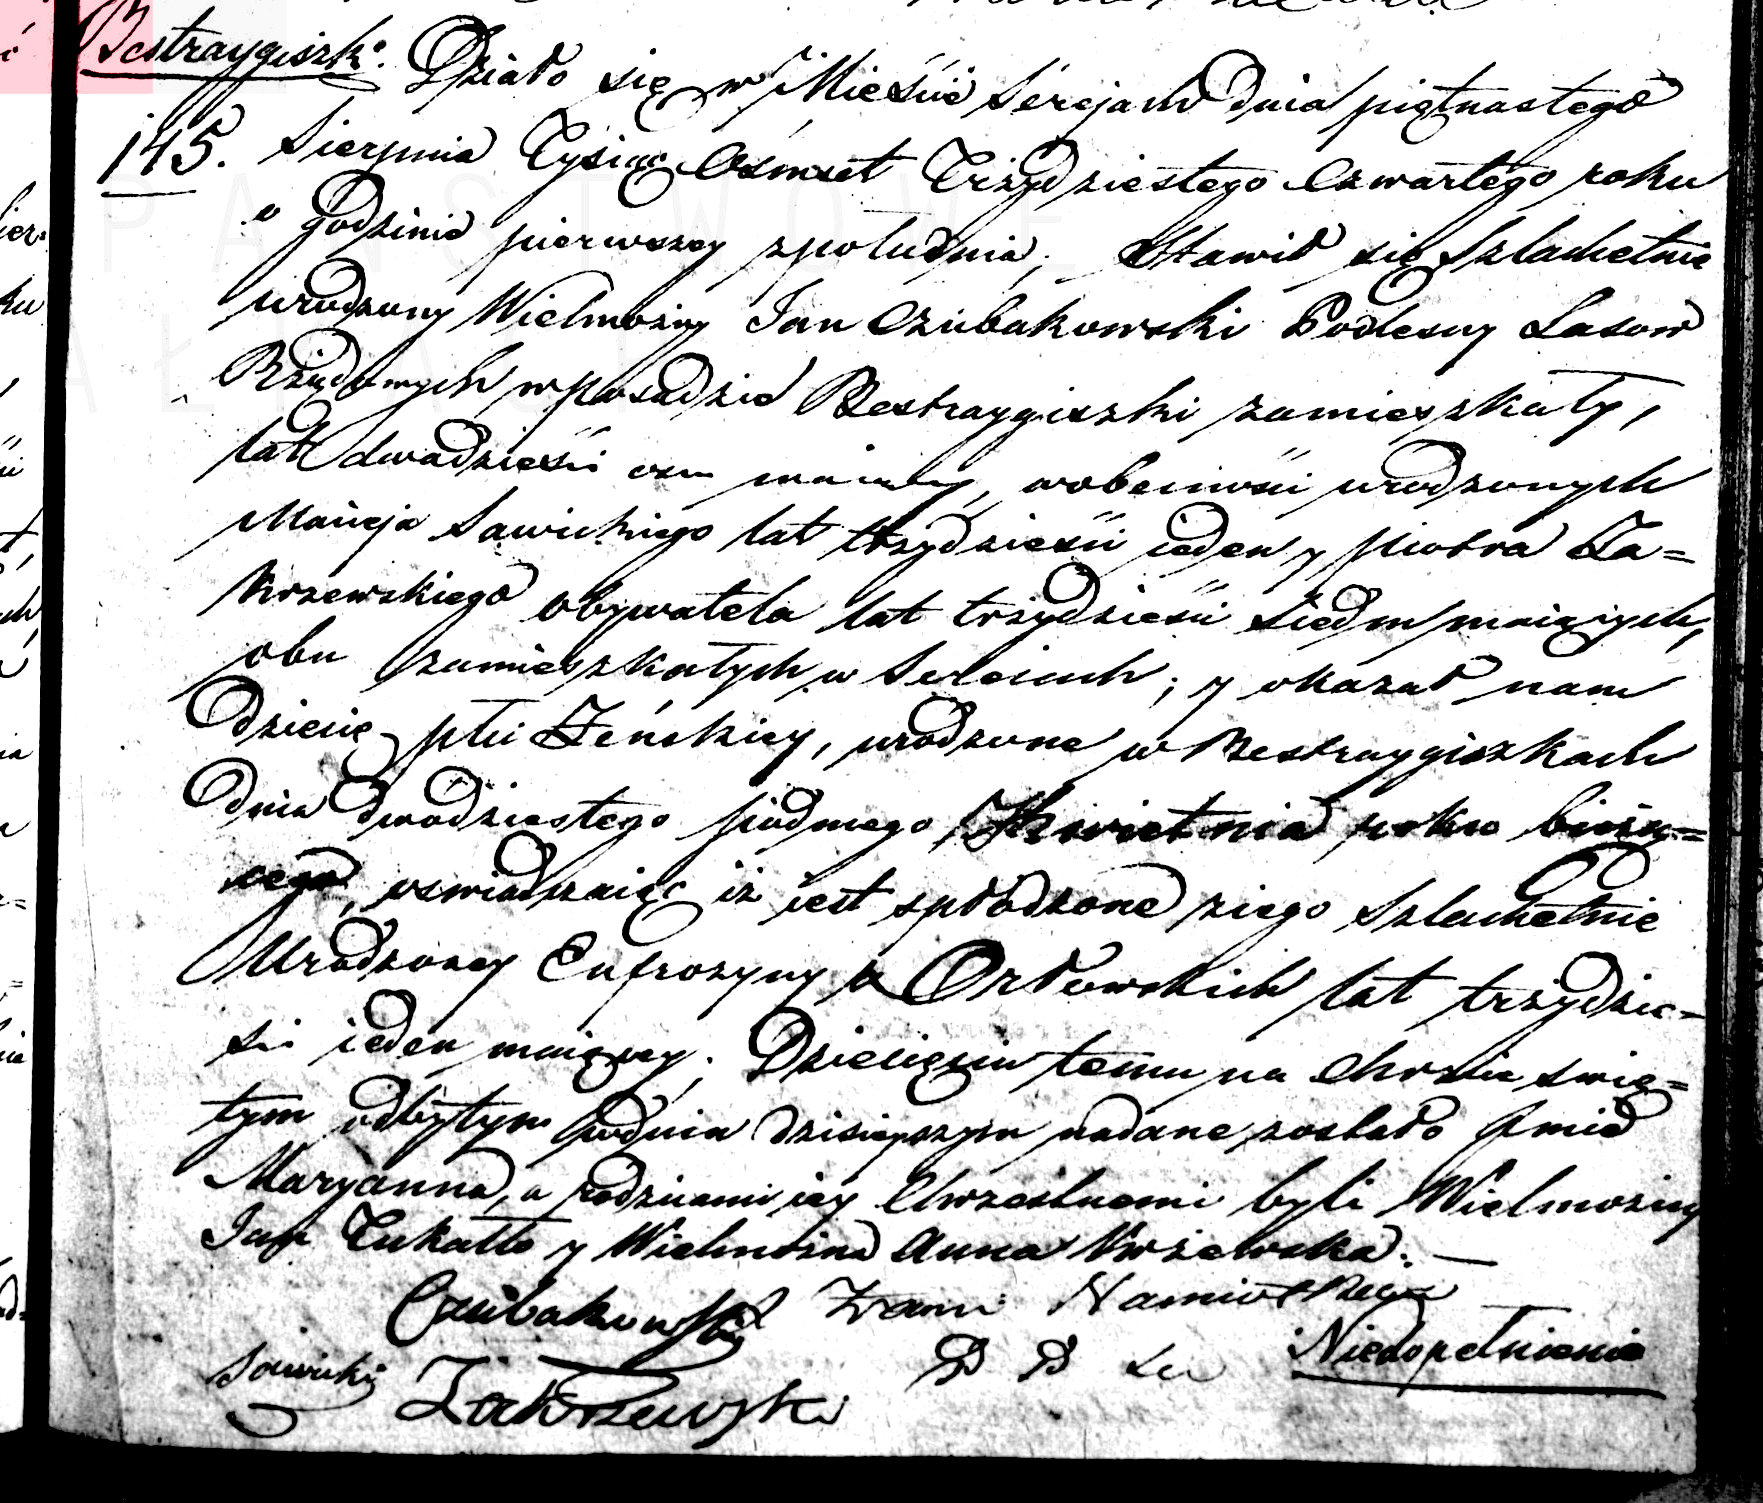 Bestraygiszki.
Działo się w Mieście Serejach dnia piętnastego
145. Sierpnia Tysiąc Osmset Trzydziestego Czwartego roku
o godzinie pierwszey zpołudnia, Stawił się Szlachetnie
urodzony Wielmożny Jan Czubakowski Podleśny Lasow
Rządowych w posadzie Bestraygiszki zamieszkały,
lat dwadzieścia osm maiący, w obecności urodzonych
Macieja Sawickiego lat trzydzieści ieden y Piotra Za=
krzewskiego obywatela lat trzydzieści siedm maiących,
obu zamieszkałych w Sereiach; y okazał nam
Dziecię płci Żeńskiey, urodzone w Bestraygiszkach
dnia dwudziestego siodmego Kwietnia roku bieżą=
cego, oswiadczaiąc iż iest spłodzone z iego Szlachetnie
Urodzoney Eufrozyny z Orłowskich lat trzydzie=
ści ieden maiącey. Dziecięciu temu na Chrzcie świę=
tym odbytym w dniu dzisieyszym nadane zostało Imie
Maryanna, a rodzicami iey Chrzestnemi byli Wielmożny
Jan Tukałło y Wielmożna Anna Krzewska.
Czubakowski
Sawicki Zakrzewski Niedopełnienie